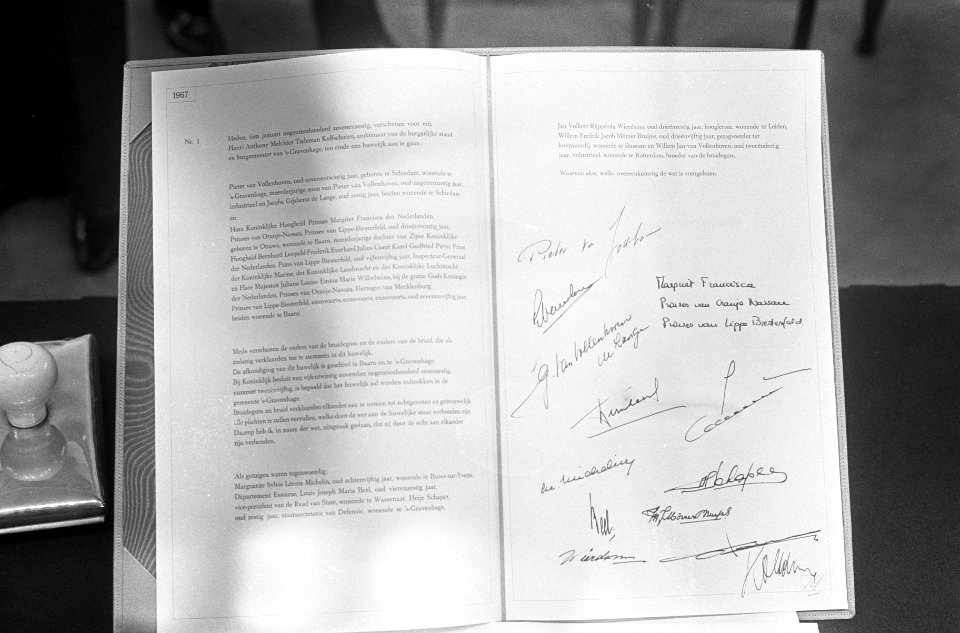 1967
Nr. 1
Heden, tien januari negentienhonderd zevenenzestig, verschenen voor mij,
Henri Anthony Melchior Tieleman Kolfschoten, ambtenaar van de burgerlijke stand
en burgemeester van 's-Gravenhage, ten einde een huwelijk aan te gaan:
Pieter van Vollenhoven, oud zevenentwintig jaar, geboren te Schiedam, wonende te
's-Gravenhage, meerderjarige zoon van Pieter van Vollenhoven, oud negenenzestig jaar,
industrieel en Jacoba Gijsberta de Lange, oud zestig jaar, beiden wonende te Schiedam
en
Hare Koninklijke Hoogheid Prinses Margriet Francisca der Nederlanden,
Prinses van Oranje-Nassau, Prinses van Lippe-Biesterfeld, oud drieëntwintig jaar,
geboren te Ottawa, wonende te Baarn, meerderjarige dochter van Zijne Koninklijke
Hoogheid Bernhard Leopold Frederik Everhard Julius Coert Karel Godfried Pieter Prins
der Nederlanden, Prins van Lippe-Biesterfeld, oud vijfenvijftig jaar, Inspecteur-Generaal
der Koninklijke Marine, der Koninklijke Landmacht en der Koninklijke Luchtmacht
en Hare Majesteit Juliana Louise Emma Marie Wilhelmina, bij de gratie Gods Koningin
der Nederlanden, Prinses van Oranje-Nassau, Hertogin van Mecklenburg,
Prinses van Lippe-Biesterfeld, enzovoorts, enzovoorts, enzovoorts, oud zevenenvijftig jaar,
beiden wonende te Baarn.
Mede verschenen de ouders van de bruidegom en de ouders van de bruid, die als
zodanig verklaarden toe te stemmen in dit huwelijk.
De afkondiging van dit huwelijk is geschied te Baarn en te 's-Gravenhage.
Bij Koninklijk besluit van vijfentwintig november negentienhonderd zesenzestig,
nummer tweeenvijftig, is bepaald dat het huwelijk zal worden voltrokken in de
gemeente 's-Gravenhage.
Bruidegom en bruid verklaarden elkander aan te nemen tot echtgenoten en getrouwelijk
alle plichten te zullen vervullen, welke door de wet aan de huwelijkse staat verbonden zijn
Daarop heb ik, in naam der wet, uitspraak gedaan, dat zij door de echt aan elkander
zijn verbonden.
Als getuigen waren tegenwoordig:
Marguerite Sylvie Léonie Michelin, oud achtenvijftig jaar, wonende te Bures-sur-Yvette
Département Essonne, Louis Joseph Maria Beel, oud vierenzestig jaar,
vice-president van de Raad van State, wonende te Wassenaar, Heije Schaper,
oud zestig jaar, staatssecretaris van Defensie, wonende te 's-Gravenhage,
Jan Volkert Rijpperda Wierdsma, oud drieënzestig jaar, hoogleraar, wonende te Leiden,
Willem Fredrik Jacob Mörzer Bruijns, oud drieënvijftig jaar, gezagvoerder ter
koopvaardij, wonende te Bussum en Willem Jan van Vollenhoven, oud tweeëndertig
jaar, industrieel, wonende te Rotterdam, broeder van de bruidegom.
Waarvan akte, welke overeenkomstig de wet is voorgelezen.
Pieter van
Margriet Francisca
Prinses van Oranje Nassau
Prinses van Lippe Biesterfeld
J.G. van Vollenhoven
de Lange
Schaper
Beel,
Wierdsma